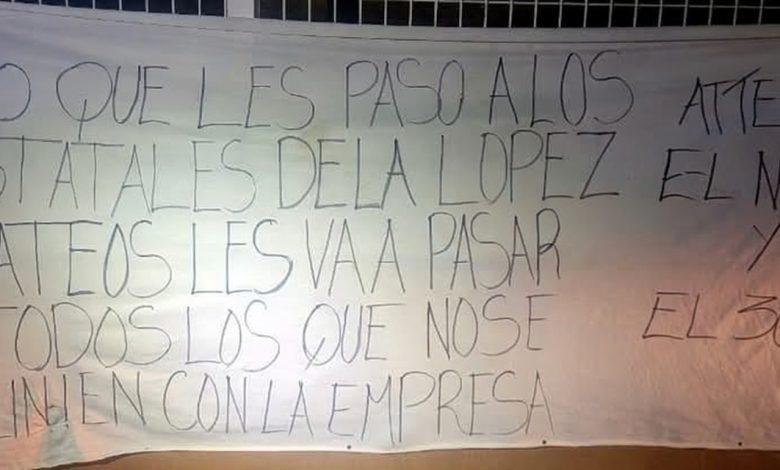 O QUE LES PASO A LOS
STATALES DE LA LOPEZ
ATEOS LES VA A PASAR
TODOS LOS QUE NO SE
LINIEN CON LA EMPRESA
ATTE
EL N
Y
EL 30